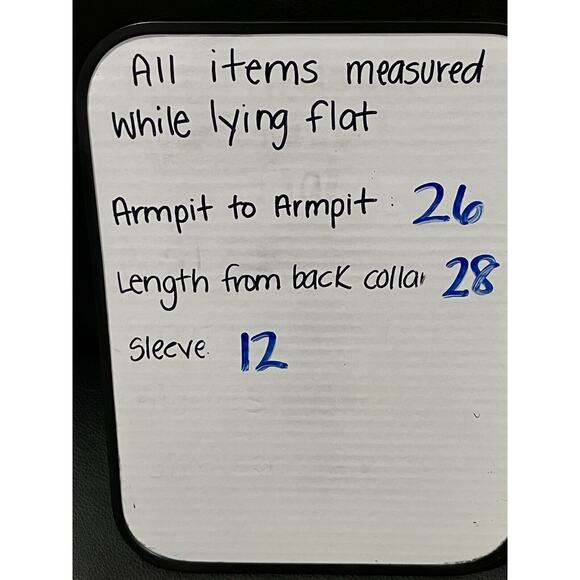 All items measured
while lying flat
Armpit to Armpit : 26
Length from back collar 28
Sleeve 12